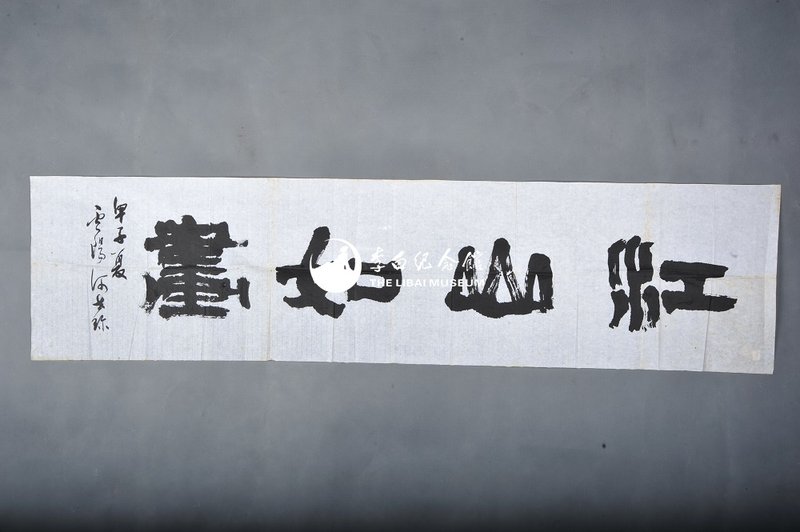 江山如畫
甲子夏
雲陽
李白纪念馆
THE LIBAI MUSEUM